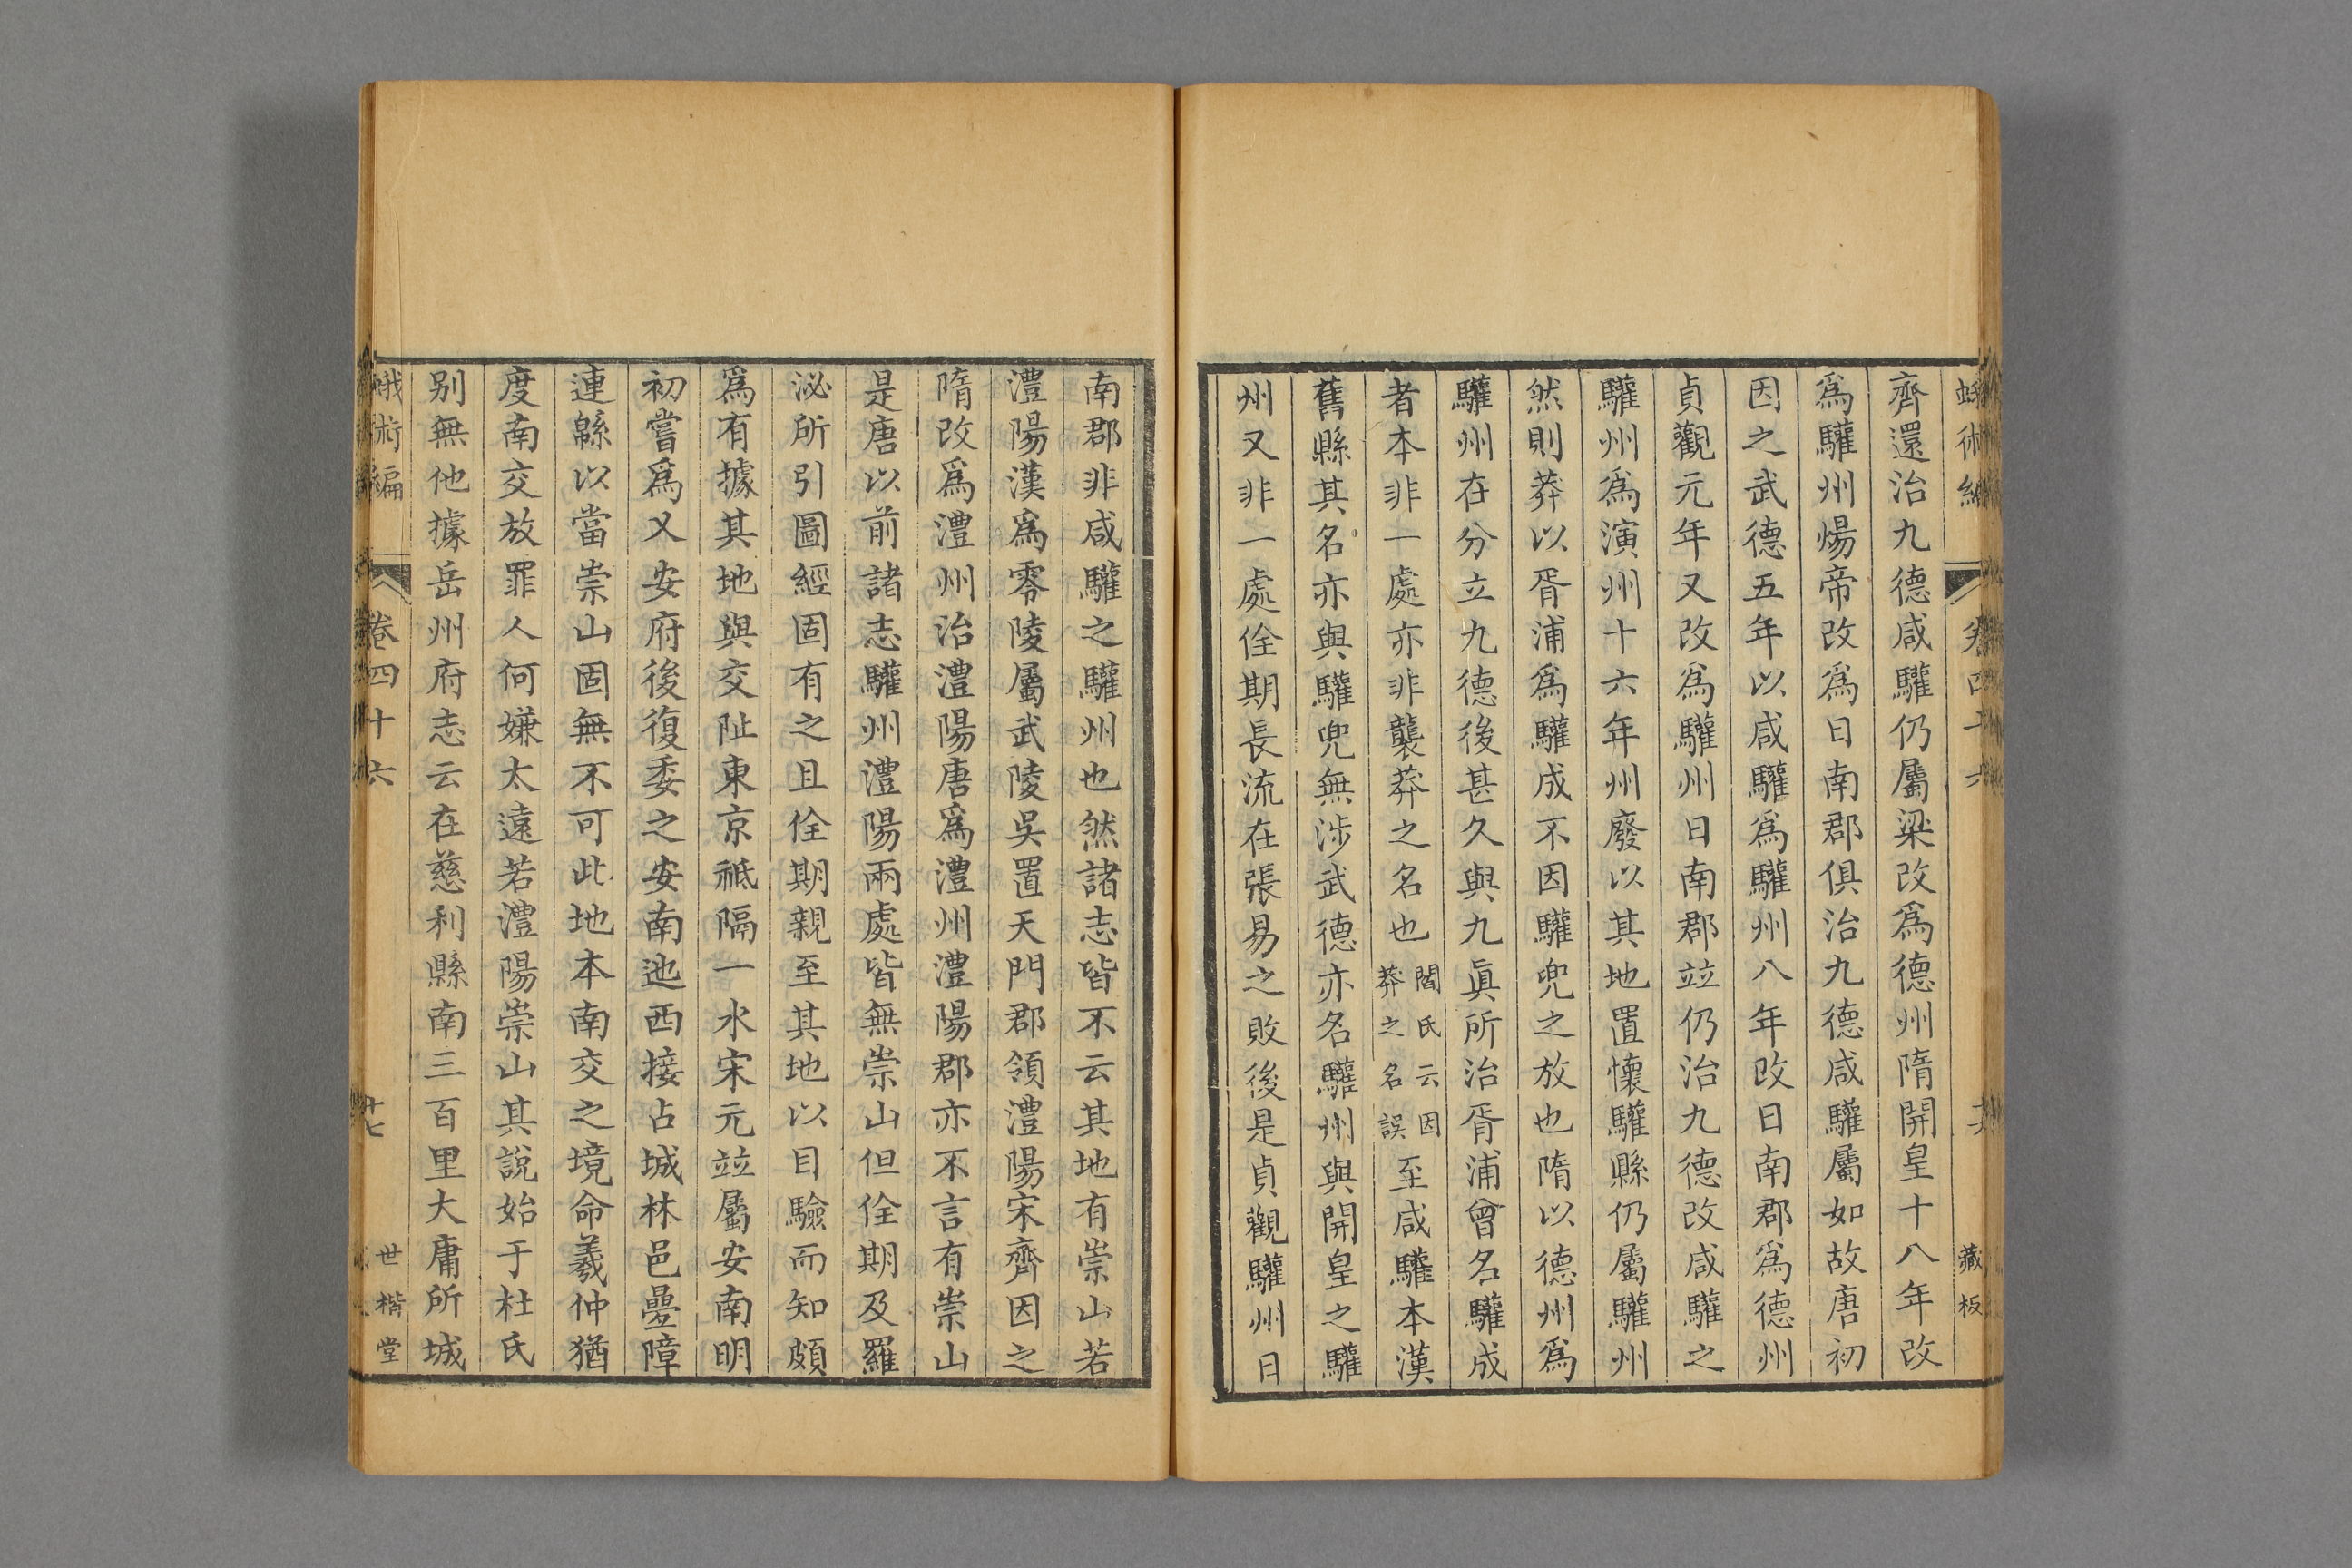 齊還治九德咸驩仍屬梁改爲德州隋開皇十八年改
爲驩州煬帝改爲日南郡俱治九德咸驩屬如故唐初
因之武德五年以咸驩爲驩州八年改日南郡爲德州
貞觀元年又改爲驩州日南郡竝仍治九德改咸驩之
驩州爲演州十六年州廢以其地置懷驩縣仍屬驩州
然則莽以胥浦爲驩成不因驩兜之放也隋以德州爲
驩州在分立九德後甚久與九眞所治胥浦曾名驩成
者本非一處亦非襲莽之名也閻氏云因莽之名誤至咸驩本漢
舊縣其名亦與驩兜無涉武德亦名驩州與開皇之驩
州又非一處佺期長流在張易之敗後是貞觀驩州日
南郡非咸驩之驩州也然諸志皆不云其地有崇山若
澧陽漢爲零陵屬武陵吳置天門郡領澧陽宋齊因之
隋改爲澧州治澧陽唐爲澧州澧陽郡亦不言有崇山
是唐以前諸志驩州澧陽兩處皆無崇山但佺期及羅
泌所引圖經固有之且佺期親至其地以目驗而知頗
爲有據其地與交阯東京祗隔一水宋元竝屬安南明
初嘗爲乂安府後復委之安南迆西接占城林邑疊障
連緜以當崇山固無不可此地本南交之境命羲仲猶
度南交放罪人何嫌太遠若澧陽崇山其說始于杜氏
别無他據岳州府志云在慈利縣南三百里大庸所城
蛾術編
卷四十六
十七
世楷堂
藏板